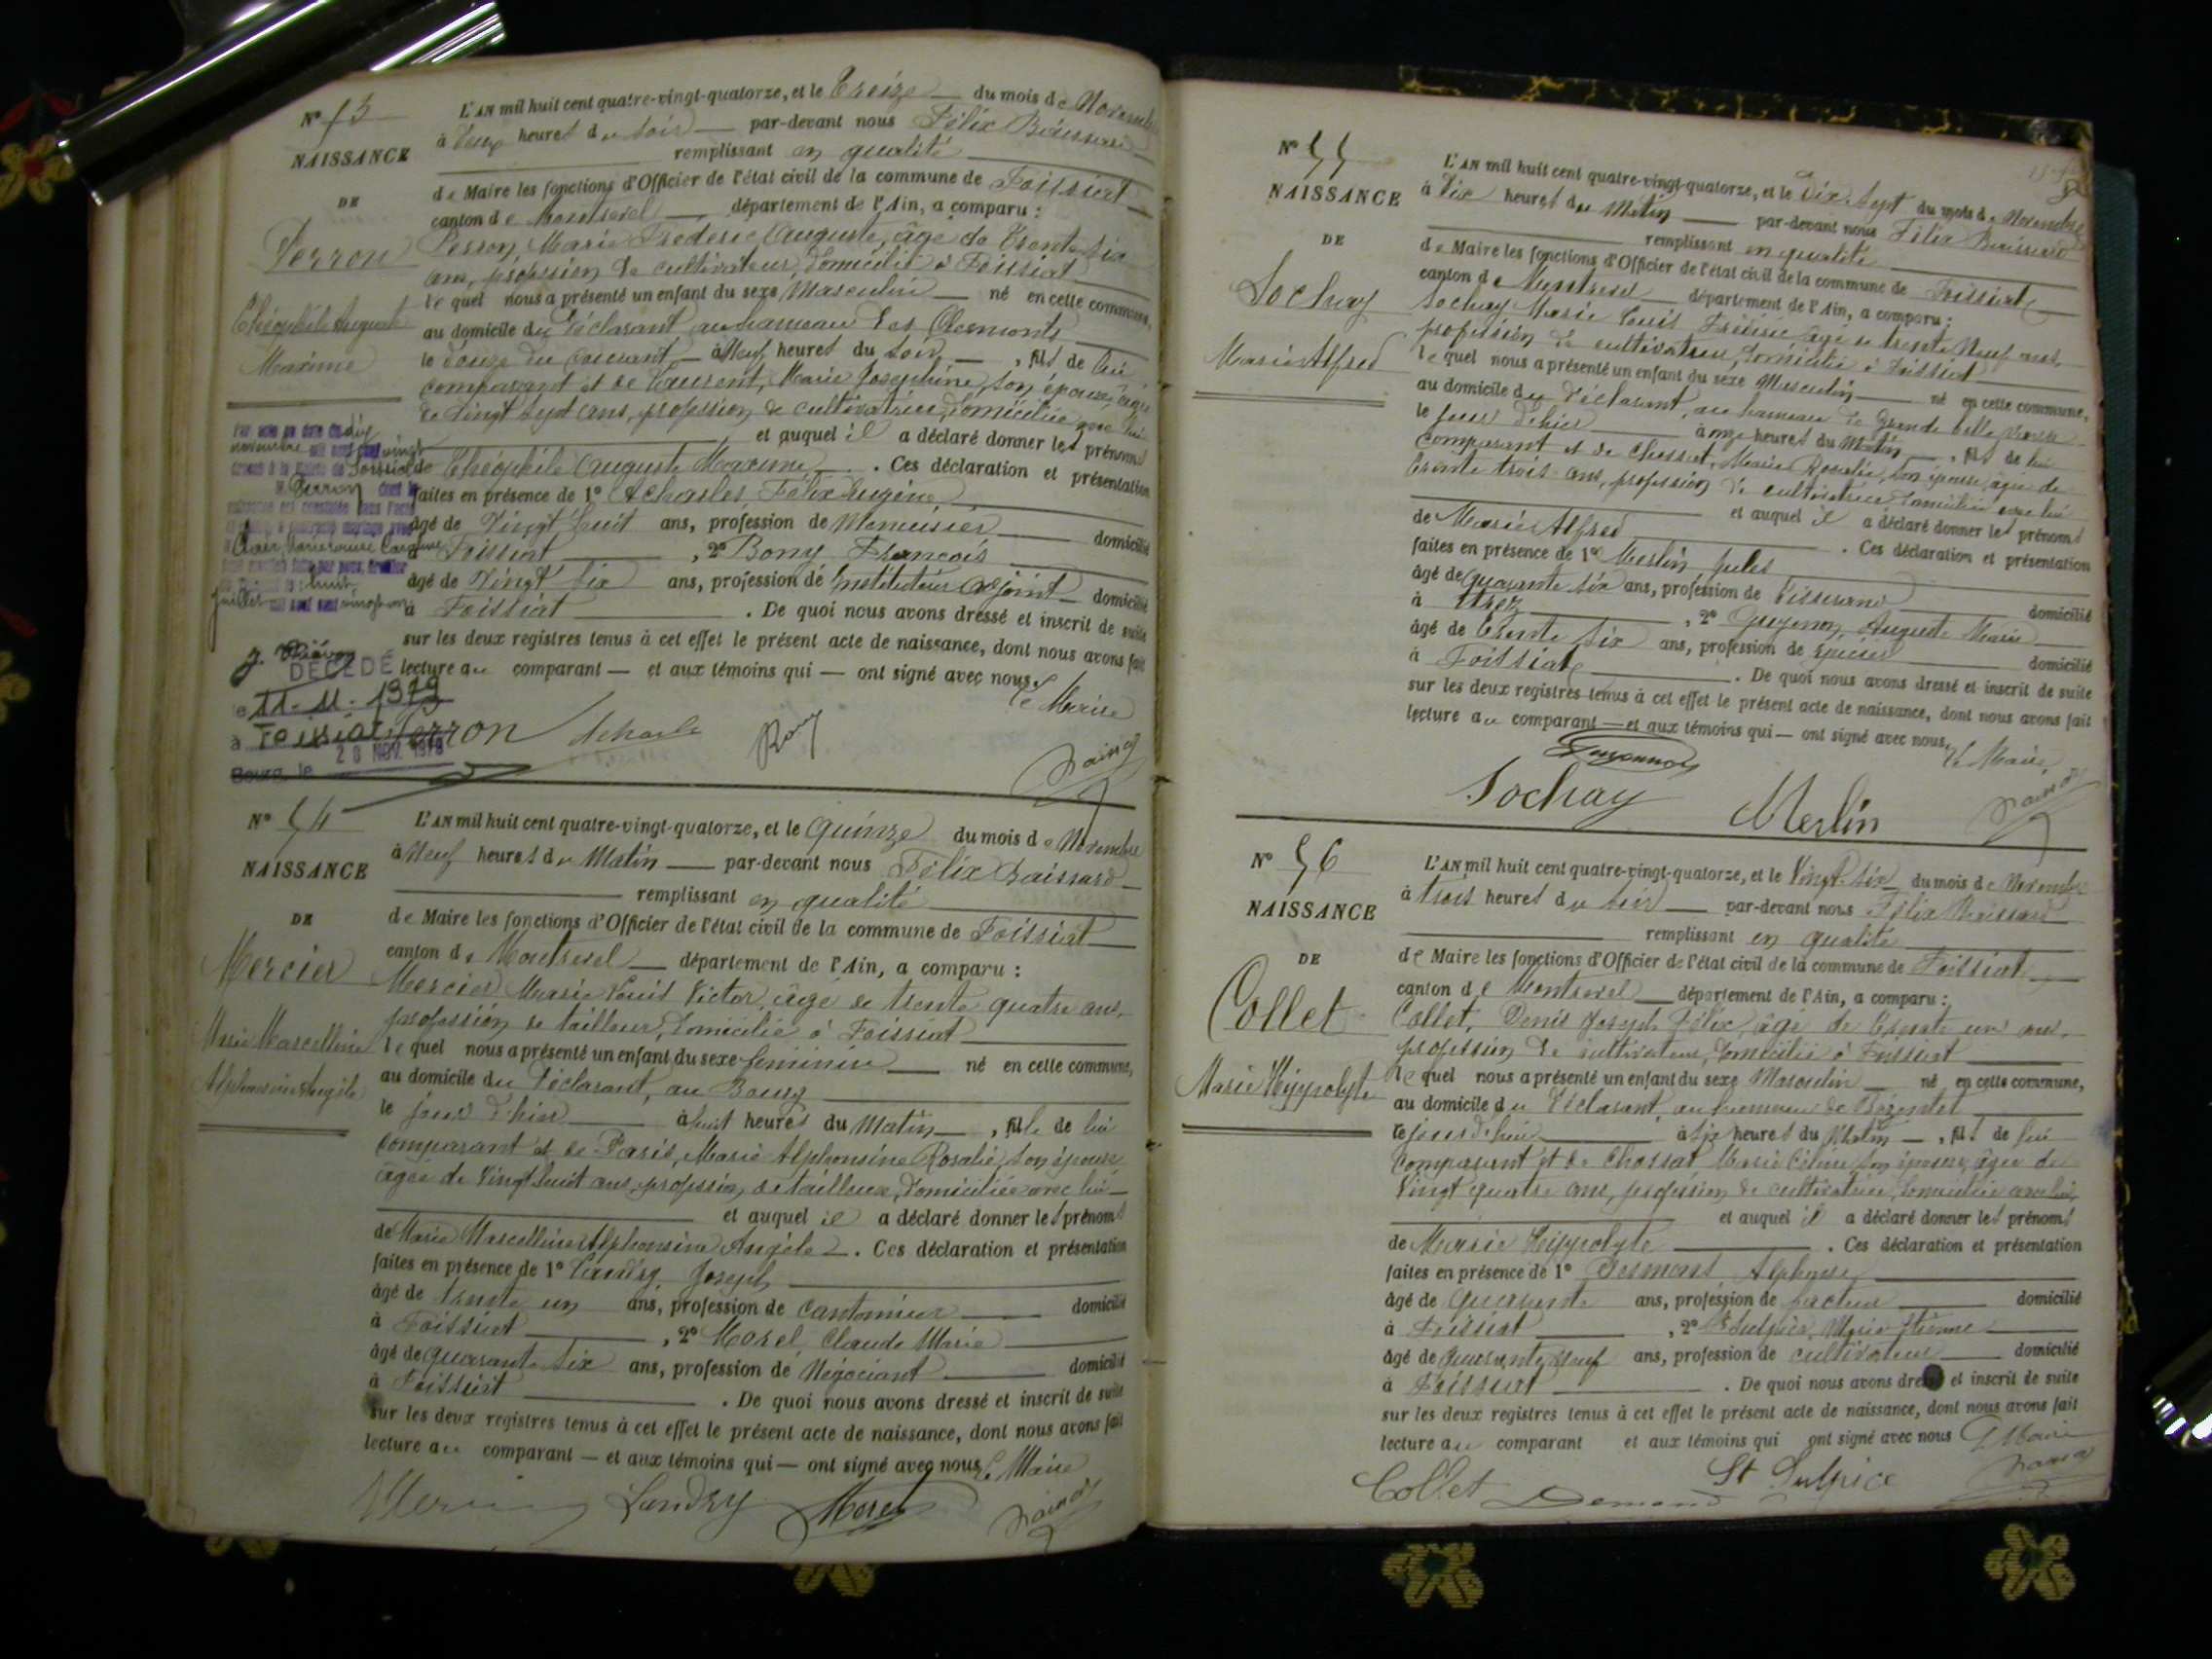 N° 53
NAISSANCE
DE
Perron
Théophile Auguste
Maxime
L'AN mil huit cent quatre-vingt-quatorze, et le Treize du mois de Novembre
à deux heures du soir par-devant nous Félix
remplissant en qualité
de Maire les fonctions d'Officier de l'état civil de la commune de Foissiat
canton de Montrevel département de l'Ain, a comparu :
Perron, Marie Frédéric Auguste, âgé de Trente six
ans, profession de cultivateur, domicilié à Foissiat
le quel nous a présenté un enfant du sexe Masculin né en cette commune,
au domicile du Déclarant au hameau des
le douze du courant à Neuf heures du soir, fils de lui
comparant et de Laurent, Marie Joséphine, son épouse, âgée
de Vingt Sept ans, profession de cultivatrice, domiciliée avec lui
et auquel il a déclaré donner les prénoms
de Théophile Auguste Maxime. Ces déclaration et présentation
faites en présence de 1° Acharles Félix Eugène
âgé de Vingt huit ans, profession de Menuisier domicilié
à Foissiat, 2° Bony François
âgé de Vingt six ans, profession de Instituteur adjoint domicilié
à Foissiat. De quoi nous avons dressé et inscrit de suite
sur les deux registres tenus à cet effet le présent acte de naissance, dont nous avons fait
lecture au comparant — et aux témoins qui — ont signé avec nous.
Le Maire
DÉCÉDÉ
le 11.11.1979
à Foissiat
Bourg, le 28 NOV. 1979
Perron Acharle Bony
N° 54
NAISSANCE
DE
Mercier
Marie Marcelline
Alphonsine Angèle
L'AN mil huit cent quatre-vingt-quatorze, et le Quinze du mois de Novembre
à Neuf heures du Matin par-devant nous Félix
remplissant en qualité
de Maire les fonctions d'Officier de l'état civil de la commune de Foissiat
canton de Montrevel département de l'Ain, a comparu :
Mercier Marie Louis Victor, âgé de trente quatre ans,
profession de tailleur, domicilié à Foissiat
le quel nous a présenté un enfant du sexe féminin né en cette commune,
au domicile du Déclarant, au Bourg
le jour d'hier à huit heures du Matin, fille de lui
comparant et de Paris, Marie Alphonsine Rosalie, son épouse
âgée de Vingt huit ans, profession de tailleuse, domiciliée avec lui
et auquel il a déclaré donner les prénoms
de Marie Marcelline Alphonsine Angèle. Ces déclaration et présentation
faites en présence de 1° Landry Joseph
âgé de trente un ans, profession de cantonnier domicilié
à Foissiat, 2° Morel Claude Marie
âgé de quarante six ans, profession de Négociant domicilié
à Foissiat. De quoi nous avons dressé et inscrit de suite
sur les deux registres tenus à cet effet le présent acte de naissance, dont nous avons fait
lecture au comparant — et aux témoins qui — ont signé avec nous, Le Maire
Mercier Landry Morel
N° 55
NAISSANCE
DE
Sochay
Marie Alfred
L'AN mil huit cent quatre-vingt-quatorze, et le Dix Sept du mois de Novembre
à Dix heures du Matin par-devant nous Félix
remplissant en qualité
de Maire les fonctions d'Officier de l'état civil de la commune de Foissiat
canton de Montrevel département de l'Ain, a comparu :
Sochay Marie Louis Frédéric âgé de trente Neuf ans,
profession de cultivateur, domicilié à Foissiat
le quel nous a présenté un enfant du sexe Masculin né en cette commune,
au domicile du Déclarant, au hameau de Grande
le jour d'hier à onze heures du Matin, fils de lui
comparant et de Marie Rosalie, son épouse âgée de
trente trois ans, profession de cultivatrice domiciliée avec lui
et auquel il a déclaré donner les prénoms
de Marie Alfred. Ces déclaration et présentation
faites en présence de 1° Merlin Jules
âgé de quarante six ans, profession de Tisserand domicilié
à Etrez, 2° Guyonnon, Auguste Marie
âgé de Trente six ans, profession de domicilié
à Foissiat. De quoi nous avons dressé et inscrit de suite
sur les deux registres tenus à cet effet le présent acte de naissance, dont nous avons fait
lecture au comparant — et aux témoins qui — ont signé avec nous, Le Maire
Sochay Merlin
N° 56
NAISSANCE
DE
Collet
Marie Hippolyte
L'AN mil huit cent quatre-vingt-quatorze, et le Vingt six du mois de Novembre
à trois heures du soir par-devant nous Félix
remplissant en qualité
de Maire les fonctions d'Officier de l'état civil de la commune de Foissiat
canton de Montrevel département de l'Ain, a comparu :
Collet, Denis Joseph Félix, âgé de trente un ans,
profession de cultivateur, domicilié à Foissiat
le quel nous a présenté un enfant du sexe Masculin né en cette commune,
au domicile du Déclarant, au hameau de
le jour d'hier à six heures du Matin, fils de lui
comparant et de Chossat Marie Céline son épouse, âgée de
Vingt quatre ans, profession de cultivatrice, domiciliée avec lui,
et auquel il a déclaré donner les prénoms
de Marie Hippolyte. Ces déclaration et présentation
faites en présence de 1° Alphonse
âgé de Quarante ans, profession de facteur domicilié
à Foissiat, 2° St Sulpice, Marie Etienne
âgé de Quarante neuf ans, profession de cultivateur domicilié
à Foissiat. De quoi nous avons dressé et inscrit de suite
sur les deux registres tenus à cet effet le présent acte de naissance, dont nous avons fait
lecture au comparant et aux témoins qui ont signé avec nous Le Maire
Collet St Sulpice